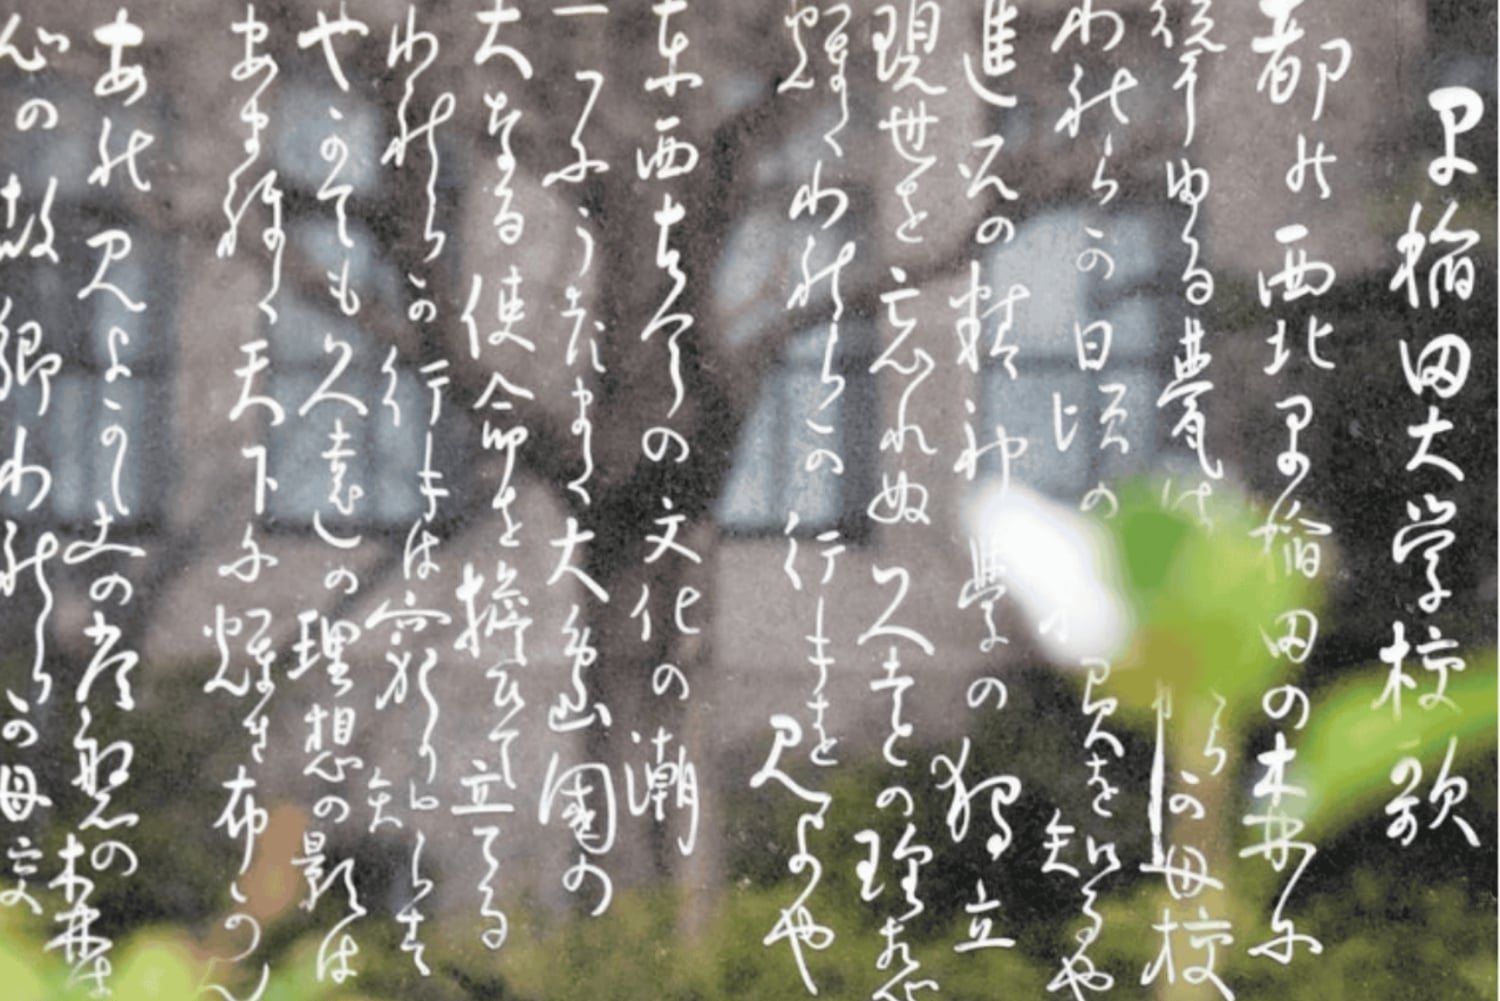 早稲田大学校歌
都の西北早稲田の森に
聳ゆる甍は らか母校
われらか日頃の 負を知るや
進取の精神學の獨立
現世を忘れぬ久遠の理想
輝くわれらか行手を見よや
東西古今の文化の潮
一つにうつまく大島國の
大なる使命を擔ひて立てる
われらか行手は窮り知らす
やかても久遠の理想の影は
あまねく天下に輝き布かん
あれ見よかしこの常磐の森は
心の故郷われらか母校